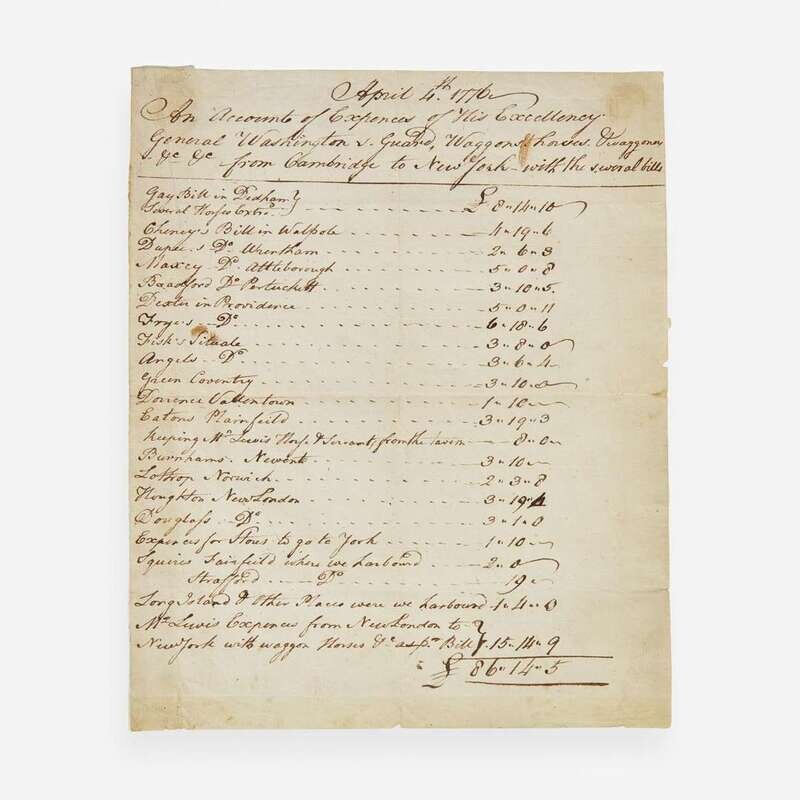 April 4th. 1776
An Accounte of Expences of His Excellency
General Washington & Guard, Waggons, horses, & waggoners
&c &c from Cambridge to New York - with the several bills
Gay Bill in Dedham }
Several Horses Extra. } £ 8 " 14 " 10
Cheney's Bill in Walpole 4 " 19 " 6
Dupee's Do. Wrentham 2 " 6 " 3
Maxcy Do. Attleborough 5 " 0 " 8
Bradford Do Pertuckett 3 " 10 " 5.
Dexter in Providence 5 " 0 " 11
Frye's Do 6 " 18 " 6
Fisk's Situate 3 " 8 " 0
Angels Do 3 " 6 " 4
Green Coventry 3 " 10 " 0
Dorrence Vallentown 1 " 10 "
Eatons Plainfeild 3 " 19 " 3
keeping Mr Lewis Horse & Servant, from the tavern 8 " 0 "
Burnhams. Newent 3 " 10 "
Lothrop Norwich 2 " 3 " 8
Houghton New London 3 " 19 " 4
Douglass Do 3 " 1 " 0
Expences for to go to York 1 " 10 "
Squires Fairfield where we harboured 2 " 0
Strafford Do 19 "
Long Island & Other Places were we harboured 1 " 4 " 0
Mr Lewis Expences from New London to }
New York with waggon Horses &c as pr Bill } 15 " 14 " 9
£ 86 " 14 " 5